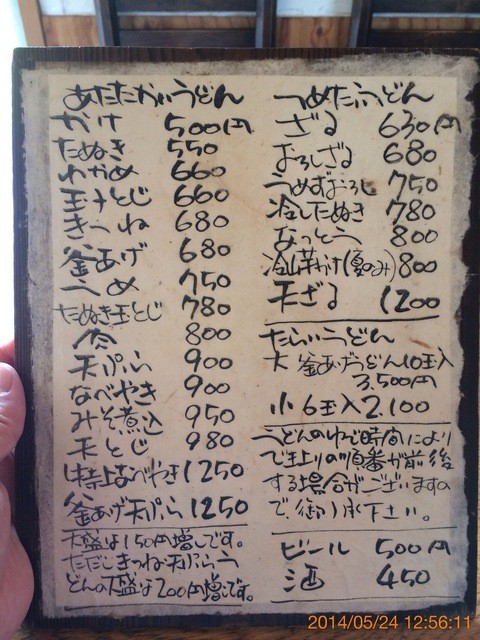 あたたかいうどん
かけ 500円
たぬき 550
わかめ 660
玉子とじ 660
きつね 680
釜あげ 680
うめ 750
たぬき玉とじ 780
肉 800
天ぷら 900
なべやき 900
みそ煮込 950
天とじ 980
特上なべやき 1250
釜あげ天ぷら 1250
大盛は150円増しです。
ただしきつね・天ぷらう
どんの大盛は200円増です。
つめたいうどん
ざる 630円
おろしざる 680
うめずおろし 750
冷したぬき 780
なっとう 800
冷山芋かけ(夏のみ) 800
天ざる 1200
たらいうどん
大 釜あげうどん10玉入
3,500円
小 6玉入 2,100
うどんのゆで時間により
で上りの順番が前後
する場合がございますの
で、御了承下さい。
ビール 500円
酒 450
2014/05/24 12:56:11